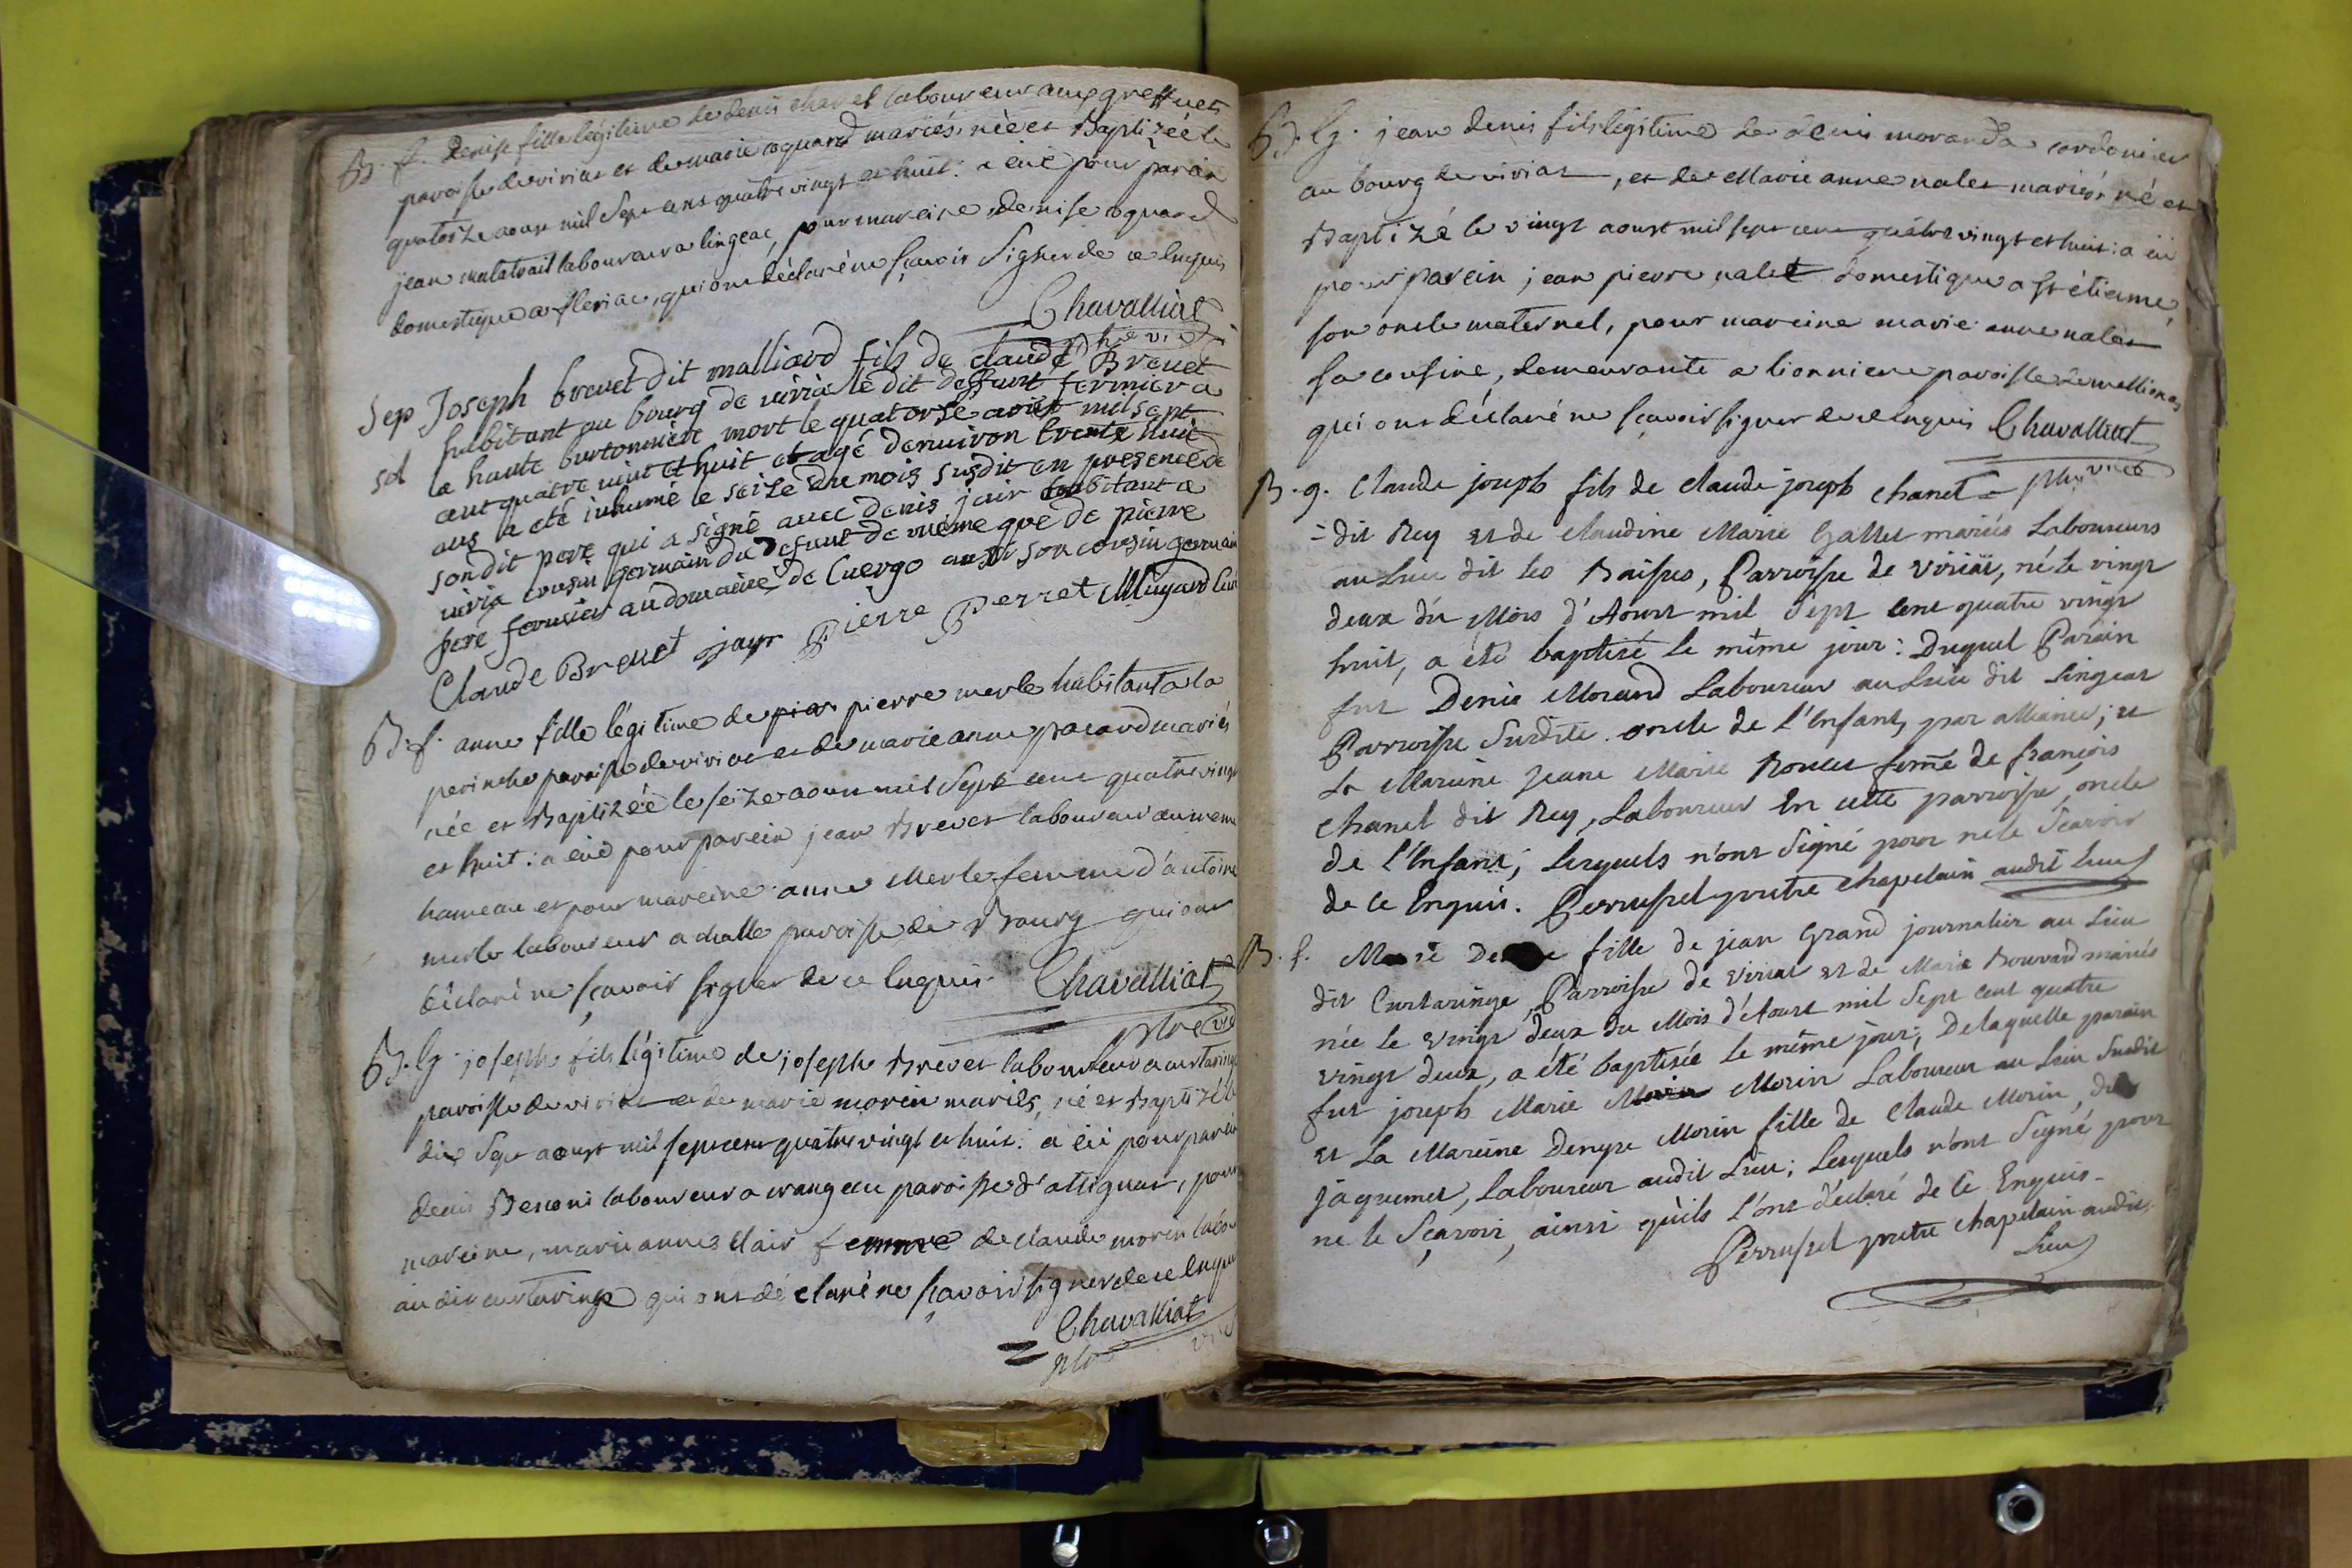 B. f. Denise fille légitime de denis chanel laboureur aux greffets
paroisse de viriat et de marie coquard mariés, née et Baptizéé le
quatorze aoust mil Sept cent quatre vingt et huit : a eüé pour parain
jean malatrait laboureur a lingeat, pour mareine denise coquard
domestique a fleriat, qui ont déclaré ne sçavoir Signer de ce Enquis
Chavalliat
ptre vic
Sep Joseph brevet dit malliard fils de claude Brevet
sol habitant au bourg de viria le dit deffunt fermier a
la haute bertonnière mort le quatorse aoust mil sept
cent quatre vint et huit et agé denviron trente huit
ans a eté inhumé le seize du mois susdit en presence de
son dit pere qui a signé avec denis jair habitant a
viria cousin germain du defunt de même que de pierre
peré fermier au domaine de Cuergo aussi son cousin germain
Claude Brevet jayr Pierre Perret Mugard Curé
B. f. anne fille légitime de pier pierre merle habitant a la
perinche paroisse de viriat et de marie anne pacard mariés
née et Baptizéé le seize aoust mil Sept cent quatre vingt
et huit : a eüé pour parein jean Brevet laboureur au meme
hameau et pour mareine anne Merle femme d'antoine
merle laboureur a challe paroisse de Bourg qui ont
déclaré ne sçavoir signer de ce Enquis. Chavalliat
ptre vic
B. g. joseph fils légitime de joseph Brevet laboureur a curtaringe
paroisse de viriat et de marie morin mariés, né et Baptizé le
dix Sept aoust mil sept cent quatre vingt et huit : a eü pour parein
denis Benoni laboureur a crangeac paroisse d'attignat, pour
mareine, marie anne Clair femme de claude morin labou
au dit curtaringe qui ont déclaré ne sçavoir signer de ce Enquis
Chavalliat
ptre vic
B. g. jean denis fils légitime de denis morand cordonier
au bourg de viriat, et de Marie anne nalet mariés, né et
Baptizé le vingt aoust mil sept cent quatre vingt et huit : a eü
pour parein jean pierre nalet domestique a st étienne,
son oncle maternel, pour mareine marie anne nalet
sa cousine, demeurante a lionniere paroisse de mellionas
qui ont déclaré ne sçavoir signer de ce Enquis Chavalliat
ptre vice
B. g. Claude joseph fils de claude joseph chanel
= dit Rey et de claudine Marie Gallet mariés Laboureurs
au Lieu dit les Baisses, Parroisse de viriat, né le vingt
deux du Mois d'Aoust mil Sept cent quatre vingt
huit, a été baptisé le même jour : Duquel Parain
fut Denis Morand Laboureur au Lieu dit Lingeat
Parroisse Susdite oncle de l'Enfant, par alliance ; et
La Mareine Jeane Marie Rollet femme de françois
Chanel dit Rey, Laboureur En cette parroisse, oncle
de l'Enfant ; Lesquels n'ont Signé pour ne le Scavoir
de ce Enquis. Perrussel prêtre chapelain audit Lieu
B. f. Marie fille de jean Grand journalier au Lieu
dit Curtaringe, Parroisse de viriat et de Marie Bouvard mariés
née le vingt deux du Mois d'Aoust mil Sept cent quatre
vingt deux, a été baptisée le même jour ; De laquelle parain
fut joseph Marie Morin Morin Laboureur au Lieu Susdit
et La Mareine Denyse Morin fille de Claude Morin, dit
jaquemet, Laboureur audit Lieu ; Lesquels n'ont Signé pour
ne le Sçavoir, ainsi qu'ils l'ont déclaré de ce Enquis.
Perrussel prêtre chapelain audit
Lieu